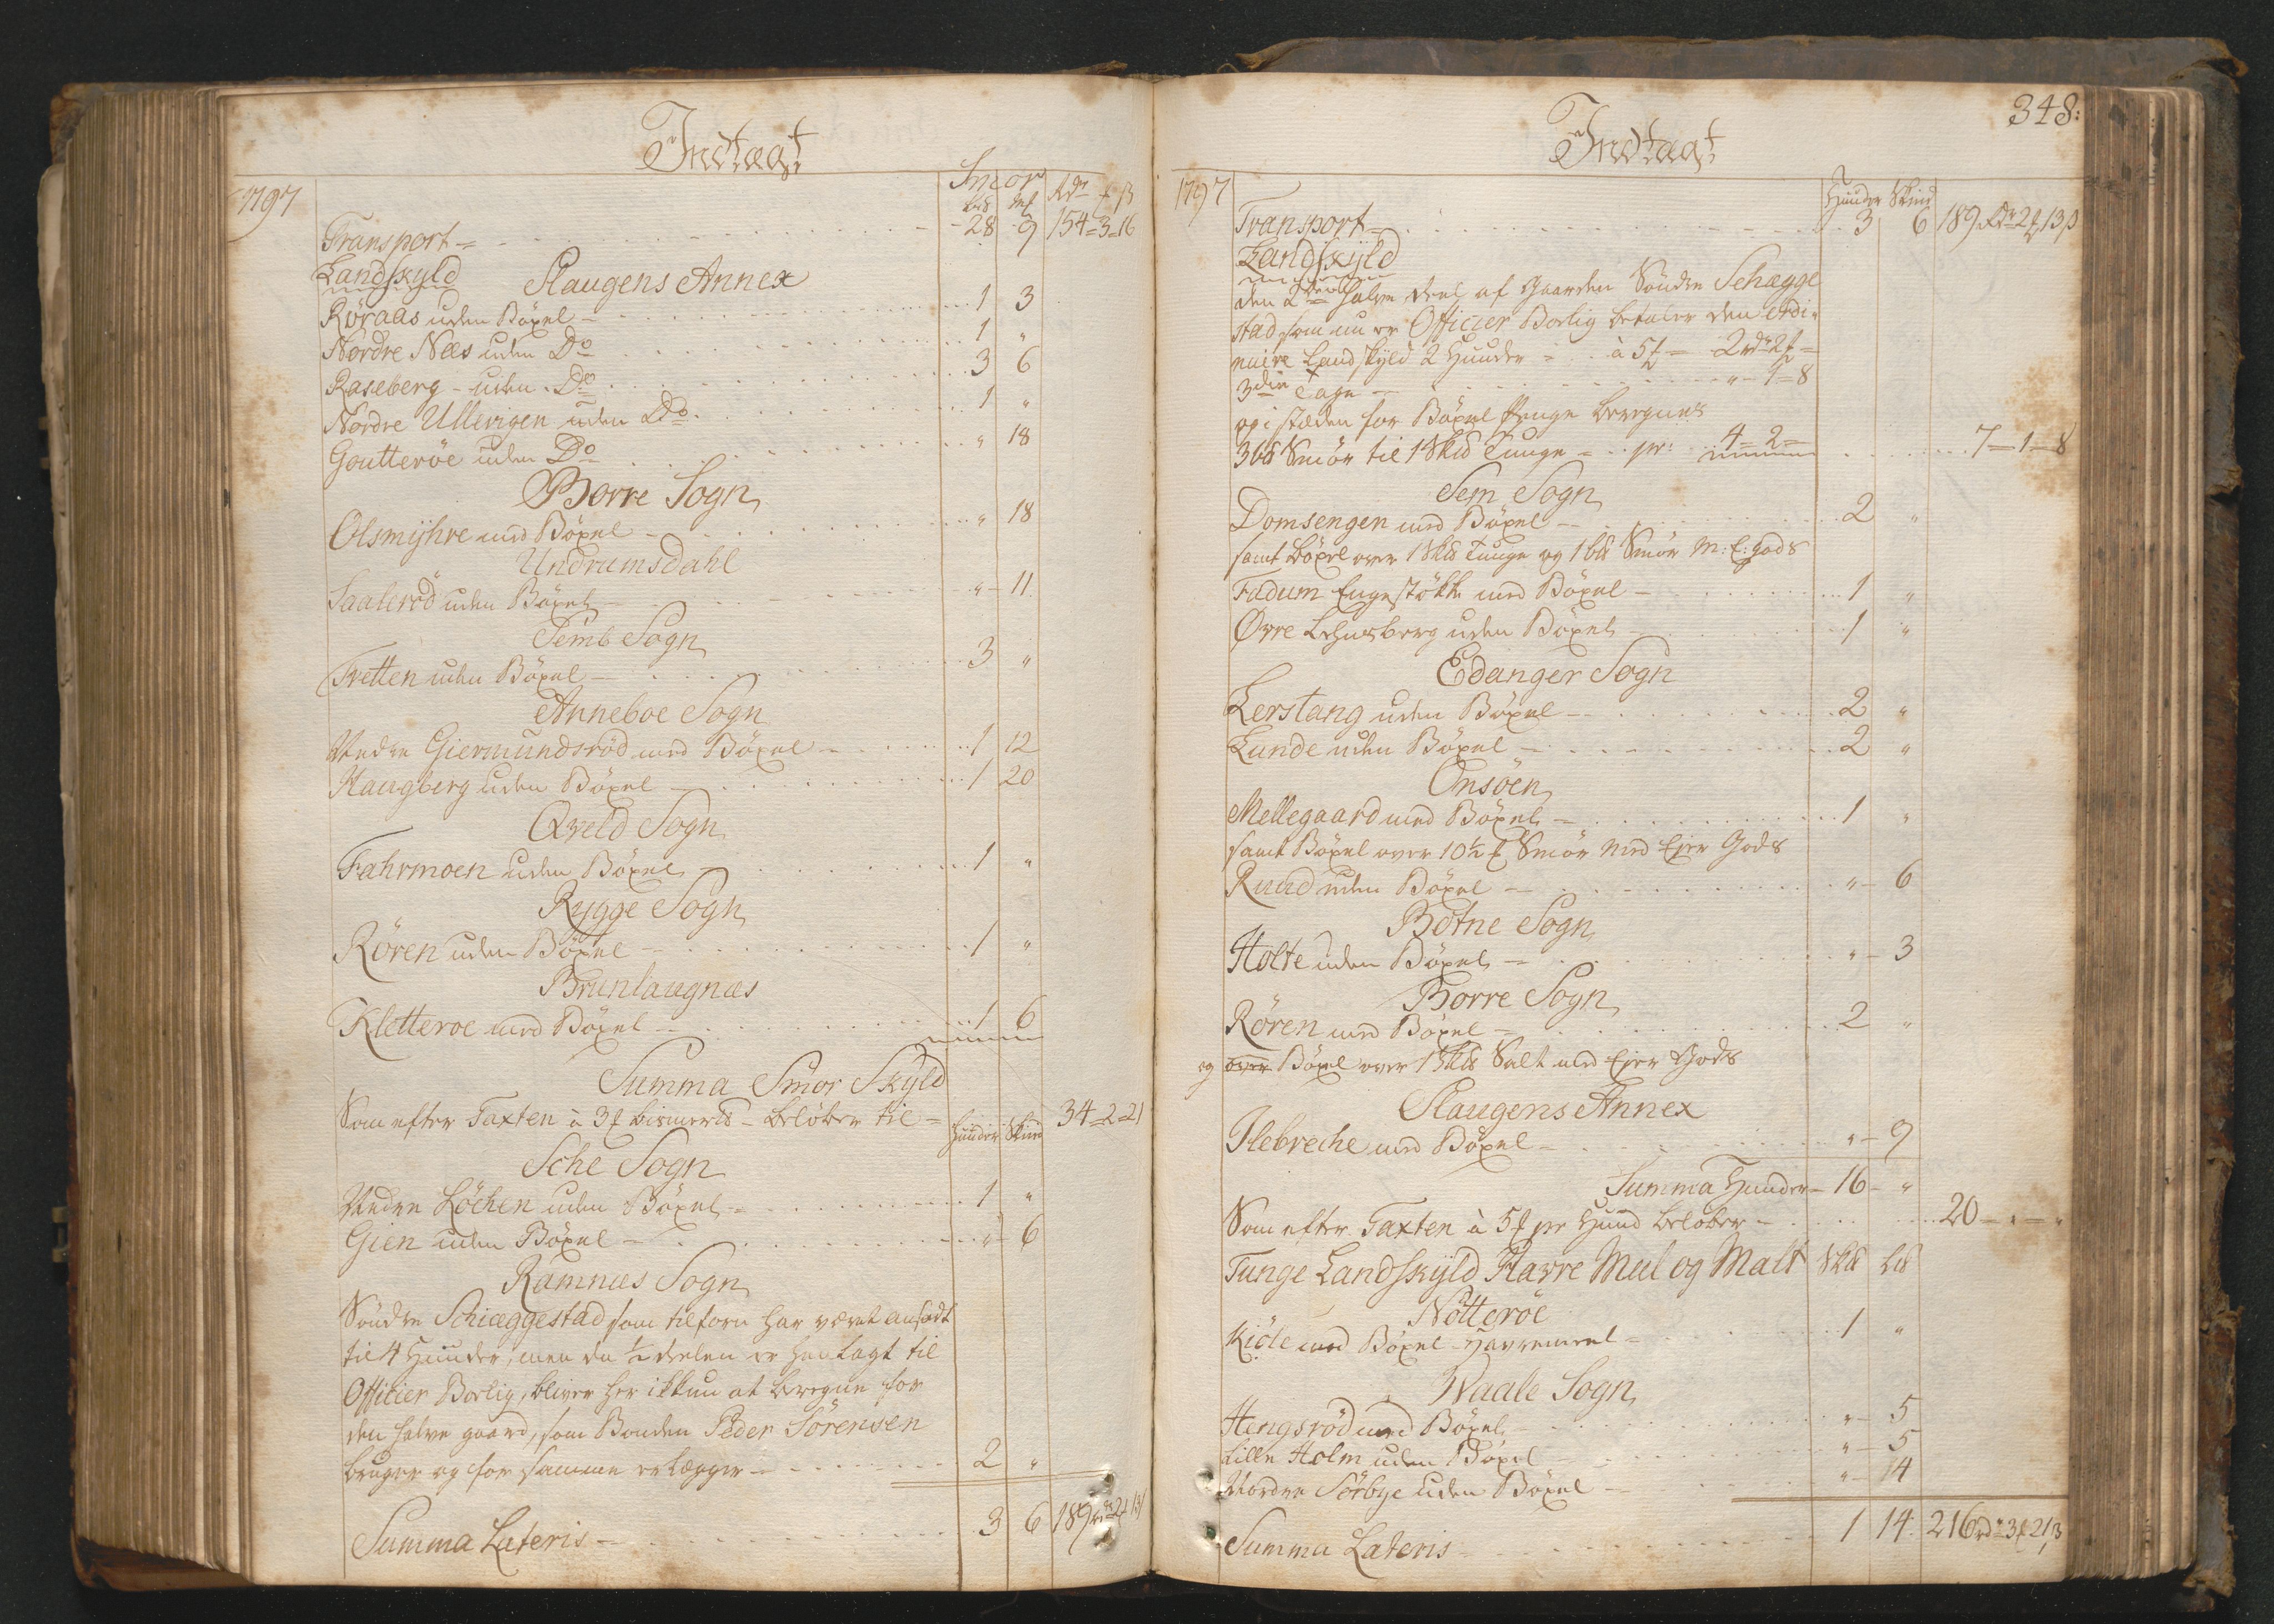 Indtægt
1797
Smør
b℔ mk Rdr ℔ β
Transport = 28 9 154=3=16
Landskyld Slaugens Annex
Røraas uden Böxel 1 3
Nordre Nees uden Do 1 "
Raseberg - uden Do 3 6
Nordre Ullevigen uden Do 1 "
Goutteröe uden Do " 18
Borre Sogn
Olsmyhre med Böxel " 18
Undrumsdahl
Saaleröd uden Böxel " 11
Semb Sogn
Tvetten uden Böxel 3 "
Anneboe Sogn
Nedre Giermundsröd med Böxel 1 12
Haugberg uden Böxel 1 20
Qveld Sogn
Fahrmoen uden Böxel 1 "
Rygge Sogn
Rören uden Böxel 1 "
Brunlaugnæs
Kletteroe med Böxel 1 6
Summa Smør Skyld
Som efter Taxten à 3 ℔ bismer℔ - beløber til = 34=2=21
Huuder Skind
Sche Sogn
Nedre Löchen uden Böxel 1 "
Gien uden Böxel " 6
Ramnæs Sogn
Söndre Schiæggestad som tilforn har været ansadt
til 4 Huuder, men da ½ deelen er henlagt til
Officier Boelig, bliver her ikkun at beregne for
den halve gaard, som Bonden Peder Sörensen
bruger og for samme erlægger 2 "
Summa Lateris 3 6 189 rdr 2 ℔ 13 β
348:
Indtægt
1797
Huuder Skind
Transport 3 6 189 Rdr 2 ℔ 13 β
Landskyld
den 2den halve deel af Gaarden Söndre Schægge
stad som nu er Officier Boelig betaler den ordi-
naire Landskyld 2 Huuder = à 5 ℔ = 2 rdr 2 ℔ =
3die Tage " - 1 = 8
og i stæden for Böxel Penge beregnes
3 b℔ Smør til 1 Sk℔ Tunge = pr: 4 = 2 = 7=1=8
Sem Sogn
Domsengen med Böxel 2 "
samt böxel over 1 Sk℔ Tunge og 1 b℔ Smør M: E: gods
Fadum Engestökke med Böxel 1 "
Øvre Lehnsberg uden Böxel 1 "
Edanger Sogn
Lerstang uden Böxel 2 "
Lunde uden Böxel 2 "
Onsöen
Mellegaard med Böxel 1 "
samt Böxel over 10½ ℔ Smör med Ejer Gods
Ruud uden Böxel " 6
Botne Sogn
Holte uden Böxel " 3
Borre Sogn
Rören med Böxel 2 "
og over Böxel over 1 Sk℔ Salt med Ejer Gods
Slaugens Annex
Ilebreche med Böxel " 9
Summa Huuder 16 "
Som efter Taxten à 5 ℔ pr Huud beløber 20 = " = "
Tunge Landskyld Havre Meel og Malt Sk℔ L℔
Nötteröe
Kiöle med Böxel - Havremeel 1 "
Waale Sogn
Hengsröd med Böxel " 5
Lille Holm uden Böxel " 5
Nordre Sörbye uden Böxel " 14
Summa Lateris 1 14 216 rdr 3 ℔ 21 β